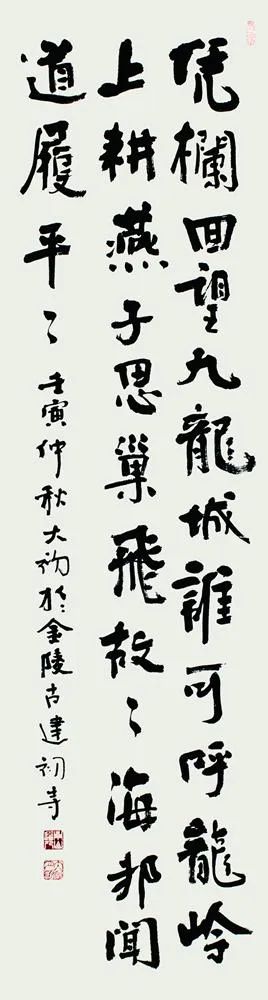 凭欄回望九龍城誰可呼龍岭
上耕燕子思巢飛故〻海邦聞
道履平〻
壬寅仲秋大初於金陵古建初寺